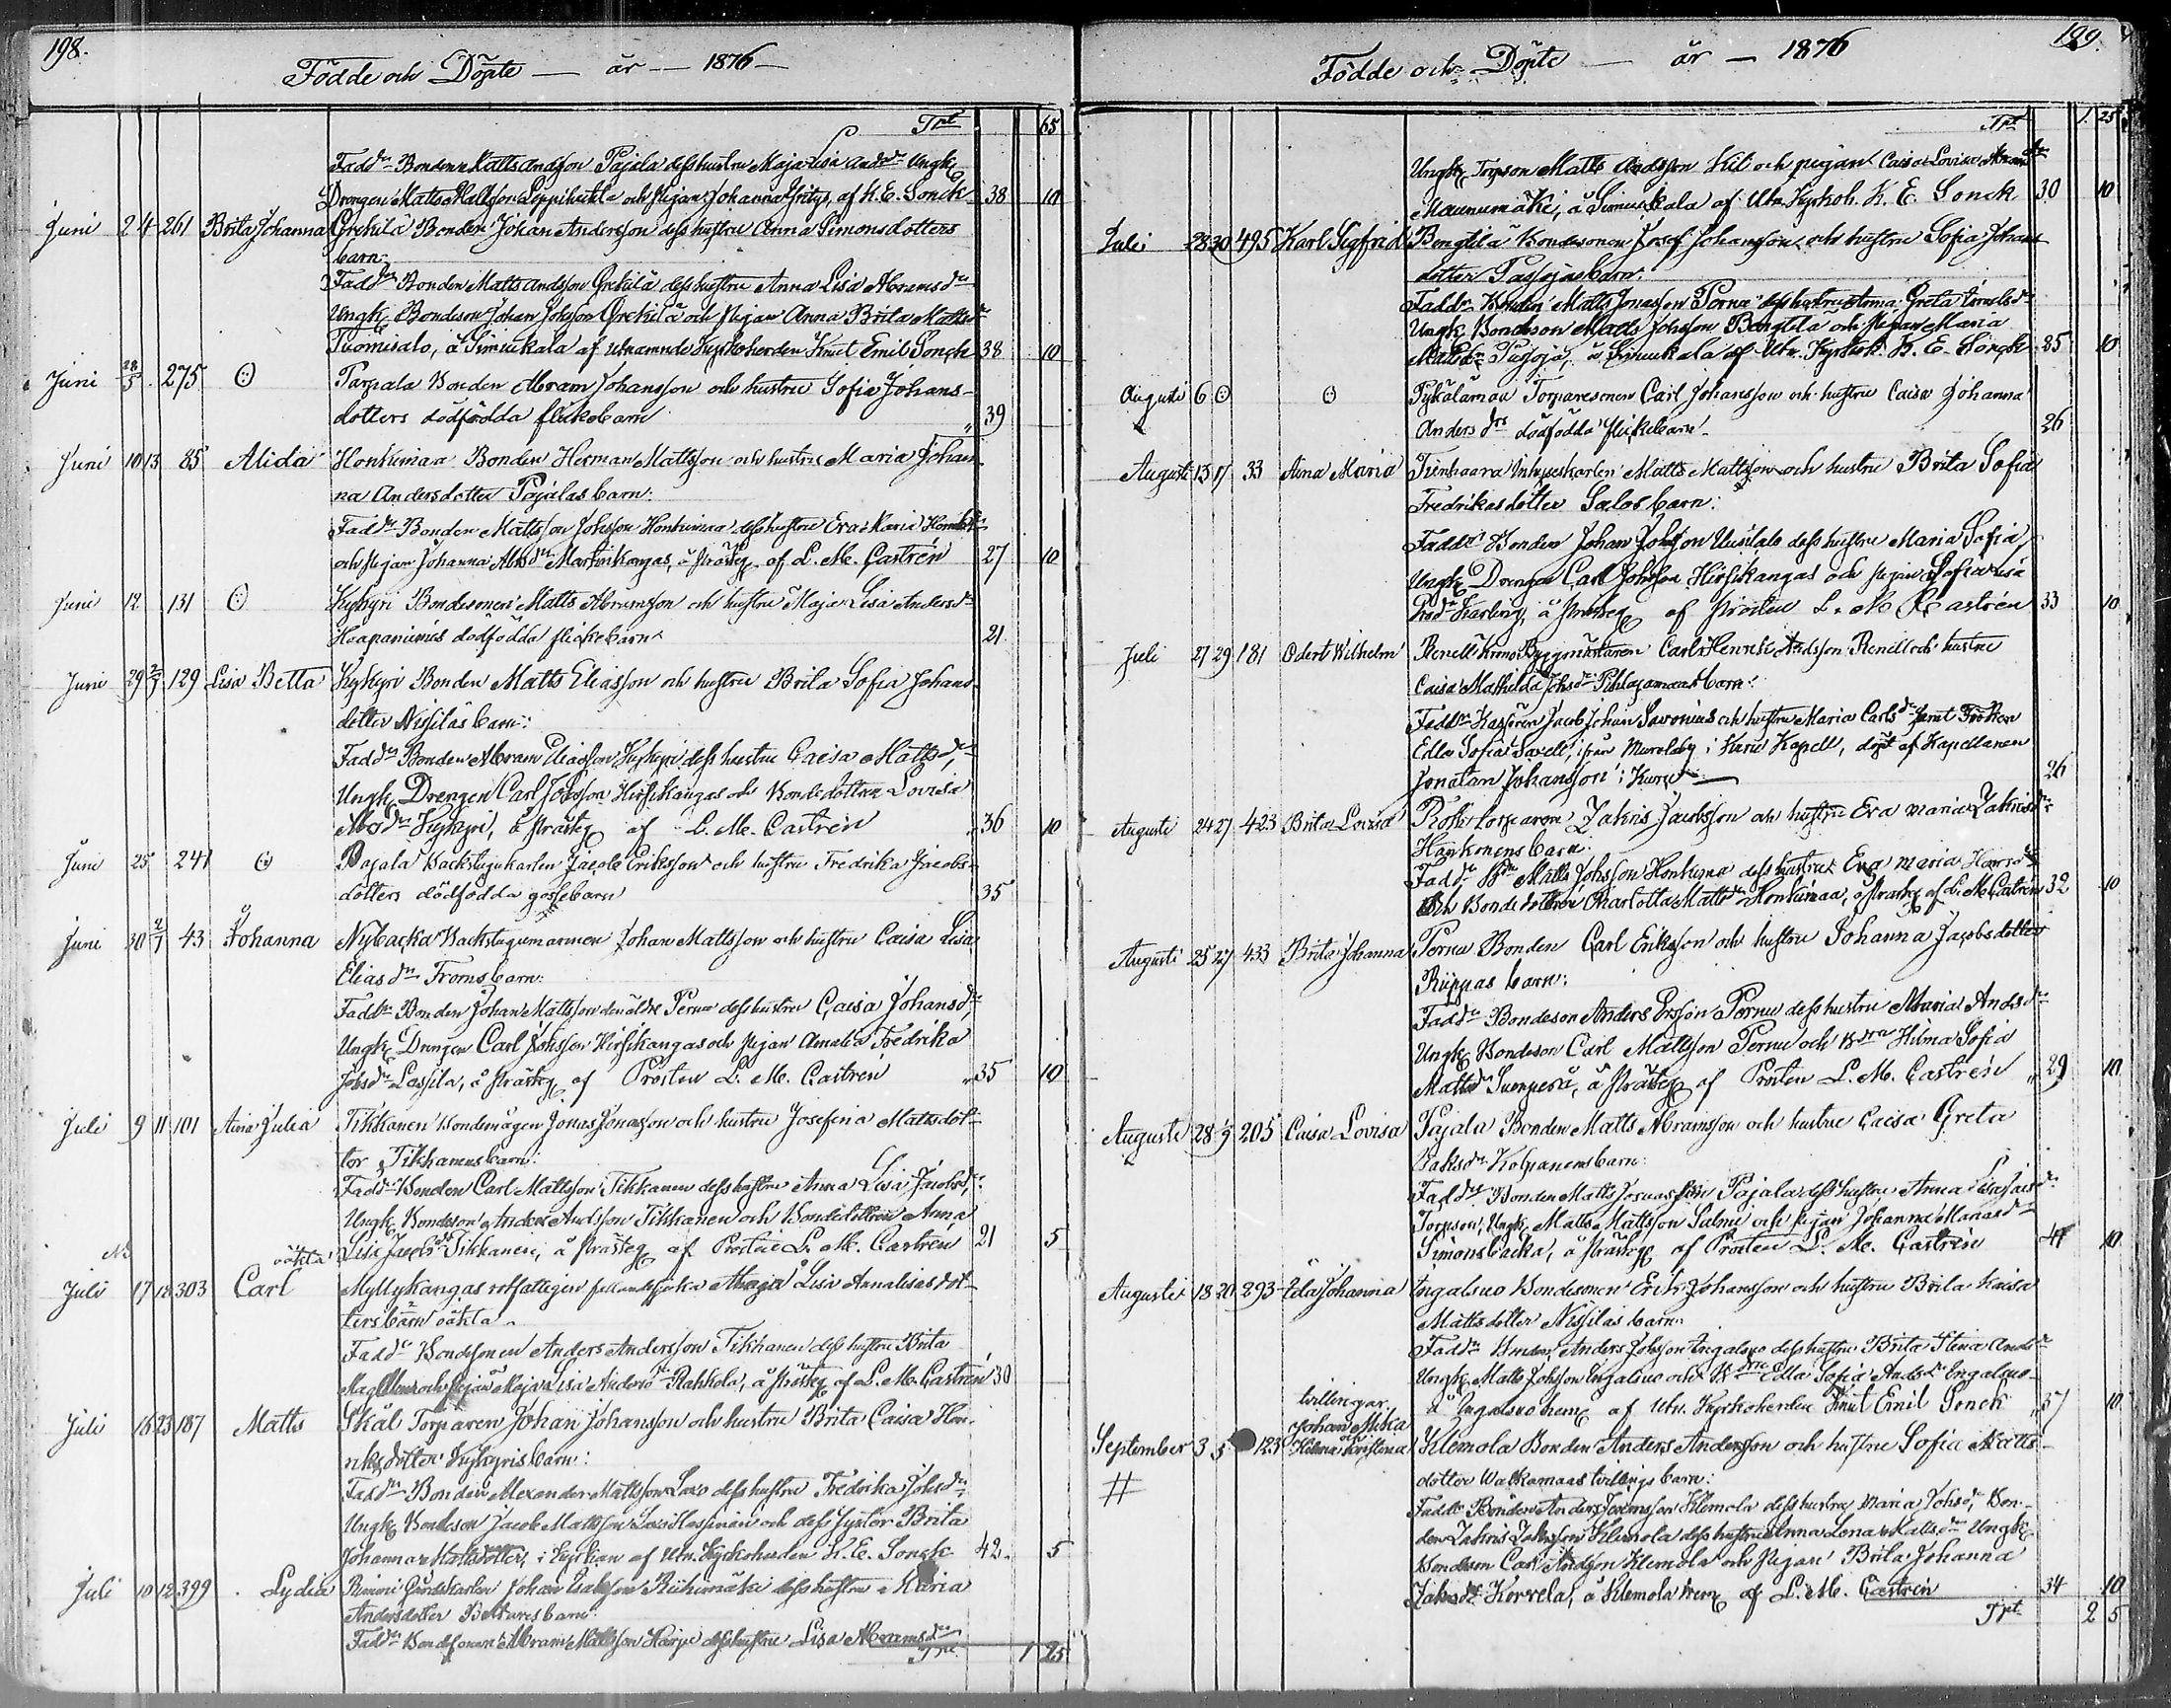 198.
Födde och Döpte — år — 1876 —
Trpt 65
Fadd:r Bonden Matts Andsson Pajala dess hustru Maja Lisa Andsdr Ungk.
Drengen Matts Mattsson och pigan Johanna af K. E. Sonck 38 10
Juni 2 4 261 Brita Johanna Grekilä Bonden Johan Andersson dess hustru Anna Simonsdotters
barn:
Fadd:r Bonden Matts Andsson Grekilä dess hustru Anna Lisa Abramsdr
Ungk. Bondeson Johan Johsson Grekilä och pigan Anna Brita Mattsdr
Tuomisalo, å Simukala af utnämnde Kyrkoherden Knut Emil Sonck 38 10
Juni 28/5 275 Θ Parpala Bonden Abram Johansson och hustru Sofia Johans-
dotters dödfödda flickebarn 39
Juni 10 13 85 Alida Honkimaa Bonden Herman Mattsson och hustru Maria Johan-
na Andersdotter Pajalas barn:
Fadd:r Bonden Mattsson Johsson Honkimaa dess hustru Eva Maria
och pigan Johanna Martinkangas, å Prästeg. af L. M. Castrén 27 10
Juni 12 131 Θ Kykyri Bondesonen Matts Abramsson och hustru Maja Lisa Andersdr
Haapaniemis dödfödda flickebarn 21
Juni 29 2/7 129 Lisa Betta Kykyri Bonden Matts Eliasson och hustru Brita Sofia Johans-
dotter Nissilas barn:
Fadd:r Bonden Abram Eliasson Kykyri dess hustru Caisa Mattsdr,
Ungk. Drengen Carl Johsson Hirsikangas och Bondedottren Lovisa
Kykyri, å Prästeg. af L. M. Castrén 36 10
Juni 25 241 Θ Pajala Backstugukarlen Jacob Eriksson och hustru Fredrika Jacobs-
dotters dödfödda gossebarn 35
Juni 30 2/7 43 Johanna Nybacka Backstugumannen Johan Mattsson och hustru Caisa Lisa
Eliasdr Froms barn:
Fadd:r Bonden Johan Mattsson den äldre Pernu dess hustru Caisa Johansdr,
Ungk. Drengen Carl Johsson Hirsikangas och pigan Amalia Fredrika
Johsdr Lassila, å Prästeg. af Prosten L. M. Castrén 35 10
Juli 9 11 101 Aina Julia Tikkanen Bondemågen Jonas Jonasson och hustru Josefina Mattsdot-
ter Tikkanens barn:
Fadd:r Bonden Carl Mattsson Tikkanen dess hustru Anna Lisa Jacobsdr,
Ungk. Bondeson Anders Andsson Tikkanen och Bondedottren Anna
Lisa Jacobsdr Tikkanen, å Prästeg. af Prosten L. M. Castrén 21 5
oäkta
Juli 17 18 303 Carl Myllykangas rotfattigen Maja Lisa Annalisasdot-
ters barn oäkta
Fadd:r Bondsonen Anders Andersson Tikkanen dess hustru Brita
och pigan Maja Lisa Andersdr Rahkola, å Prästeg. af L. M. Castrén 30
Juli 16 23 187 Matts Skäl Torparen Johan Johansson och hustru Brita Caisa Hen-
riksdotter Kykyris barn:
Fadd:r Bonden Alexander Mattsson dess hustru Fredrika Johsdr
Ungk. Bondeson Jacob Mattsson och dess syster Brita
Johanna Mattsdotter, i Kyrkan af Utn. Kyrkoherden K. E. Sonck 42 5
Juli 10 12 399 Lydia Gårdskarlen Johan Isaksson Riihimäki dess hustru Maria
Andersdotter barn:
Fadd:r Bondsonen Abram Mattsson Harju dess hustru Lisa Abramsdr
Trpt 1 25
Födde och Döpte — år — 1876
199.
Trpt 1. 25
Ungk. Torpson Matts Andsson och pigan Caisa Lovisa
Maunumäki, å Simukala af Utn. Kyrkoh. K. E. Sonck 30 10
Juli 28 30 495 Karl Sigfrid Bengtilä Bondesonen Josef Johansson och hustru Sofia Johans-
dotter barn:
Fadd:r Bonden Matts Jonasson Pernu dess hustru Anna Greta
Ungk. Bondeson Matts Johsson Bengtilä och pigan Maria
Mattsdr å Simukala af Utn. Kyrkoh. K. E. Sonck 25 10
Augusti 6 Θ Θ Torparesonen Carl Johansson och hustru Caisa Johanna
Andersdrs dödfödda flickebarn 26
Augusti 13 17 33 Anna Maria Tienhaara Inhyseskarlen Matts Mattsson och hustru Brita Sofia
Fredriksdotter Salos barn:
Fadd:r Bonden Johan Johsson Uusitalo dess hustru Maria Sofia,
Ungk. Drengen Carl Johsson Hirsikangas och pigan Sofia Lisa
å Prästeg. af Prosten L. M. Castrén 33 10
Juli 27 29 181 Odert Wilhelm Renell Byggmästaren Carl Henrik Andsson Renell och hustru
Caisa Mathilda Johsdr Pihlajamaas barn:
Fadd:r Jacob Johan Savonius och hustru Maria Carlsdr samt Fröken
Edla Sofia Savell, ifrån i Kuru Kapell, döpt af Kapellanen
Jonatan Johansson i Kuru 26
Augusti 24 27 423 Brita Lovisa torparen Zakris Jacobsson och hustru Eva Maria Zakrisdr
barn:
Fadd:r Matts Johsson Honkimaa dess hustru Eva Maria
och Bondedottren Charlotta Mattsdr Honkimaa, å Prästeg. af L. M. Castrén 32 10
Augusti 25 27 433 Brita Johanna Pernu Bonden Carl Eriksson och hustru Johanna Jacobsdotter
Riippas barn:
Fadd:r Bondeson Anders Ersson Pernu dess hustru Maria Andsdr
Ungk. Bondeson Carl Mattsson Pernu och Hilma Sofia
Mattsdr å Prästeg. af Prosten L. M. Castrén 29 10
Augusti 28 1/9 205 Caisa Lovisa Pajala Bonden Matts Abramsson och hustru Caisa Greta
Isaksdr Kolpanens barn:
Fadd:r Bonden Matts Pajala dess hustru Anna Lisa
Torpson, Ungk. Matts Mattsson Salmi och pigan Johanna
Simonsbacka, å Prästeg. af Prosten L. M. Castrén 41 10
Augusti 18 20 293 Eda Johanna Ingalsuo Bondesonen Erik Johansson och hustru Brita Kaisa
Mattsdotter Nissilas barn:
Fadd:r Bonden Anders Johsson Ingalsuo dess hustru Brita Stina Andsdr
Ungk. Matts Johsson Ingalsuo och Edla Sofia Andsdr Ingalsuo
å Ingalsuo hem. af Utn. Kyrkoherden Knut Emil Sonck 37 10
tvillingar
Johan Mika
och
September 3 5 123 Hilma Kristiina Klemola Bonden Anders Andersson och hustru Sofia Matts-
dotter Walkamaas tvillingsbarn:
Fadd:r Bonden Anders Klemola dess hustru Maria Johsdr, Bon-
den Zakris Zakrisson Klemola dess hustru Anna Lena Mattsdr Ungk.
Bondeson Carl Andsson Klemola och pigan Brita Johanna
Zakrisdr Korvela, å Klemola hem. af L. M. Castrén 34 10
Trpt 2 5